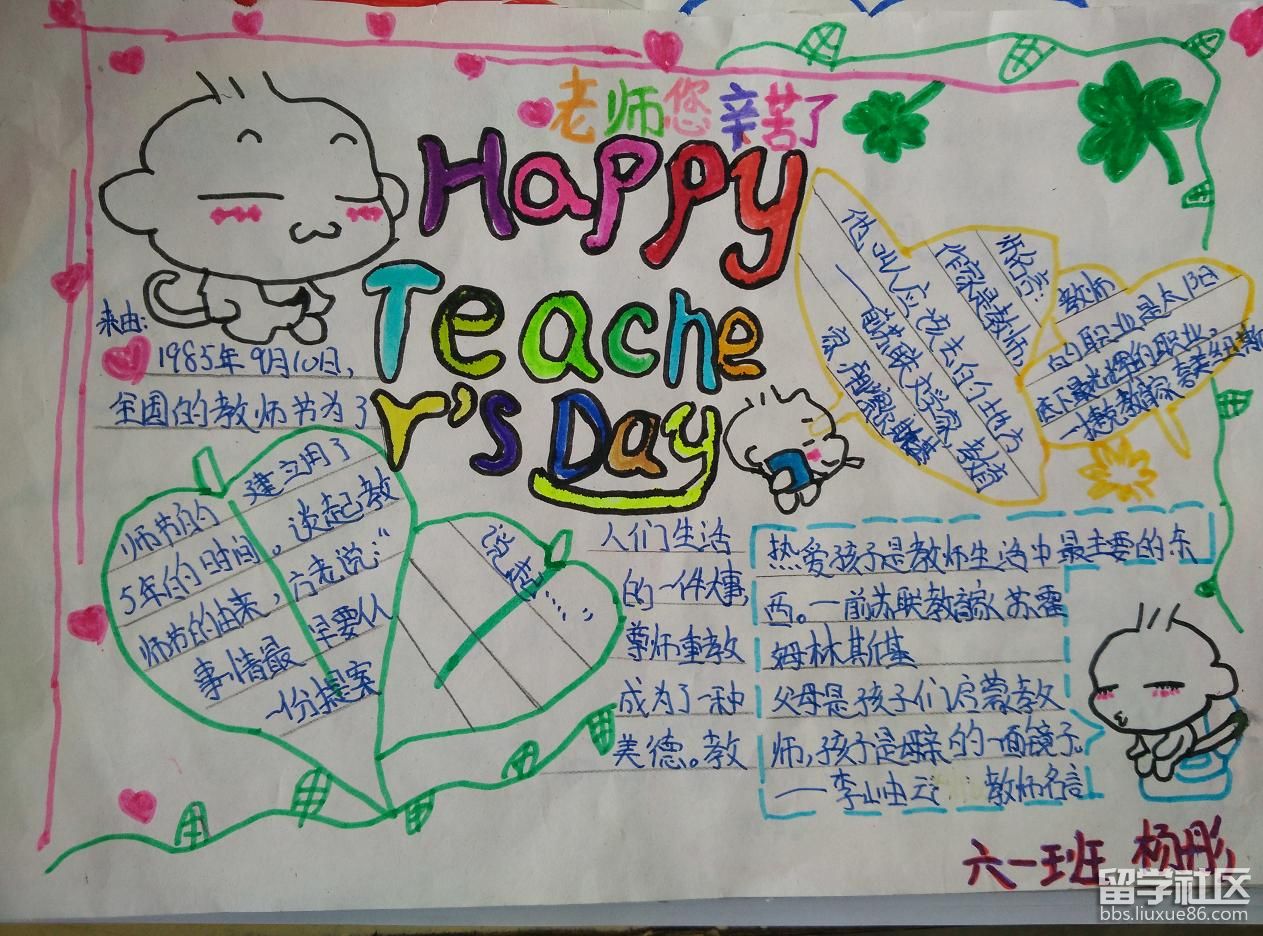 老师您辛苦了
Happy
Teache
r's Day
来由:
1985年9月10日,
全国的教师节为了
建立用了
师节的
5年的时间。谈起教
师节的由来,方老说:“
事情最早要从
一份提案
说起……”
人们生活
的一件大事,
尊师重教
成为了一种
美德。教
乐名言:
作家是教师,
他叫人应该去的地方
——前苏联文学家 教育
家
教师
的职业是太阳
底下最光辉的职业。
一捷克教育家 夸美纽斯
热爱孩子是教师生活中最主要的东
西。一前苏联教育家 苏霍
姆林斯基
父母是孩子们启蒙教
师,孩子是母亲的一面镜子。
教师名言
六一班 杨彤
留学社区
bbs.liuxue86.com